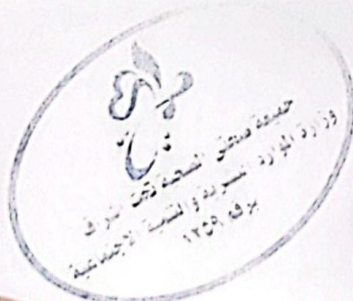 جمعية الصحة تحت اشراف
وزارة الموارد البشرية والتنمية الاجتماعية
برقم ١٢٥٩